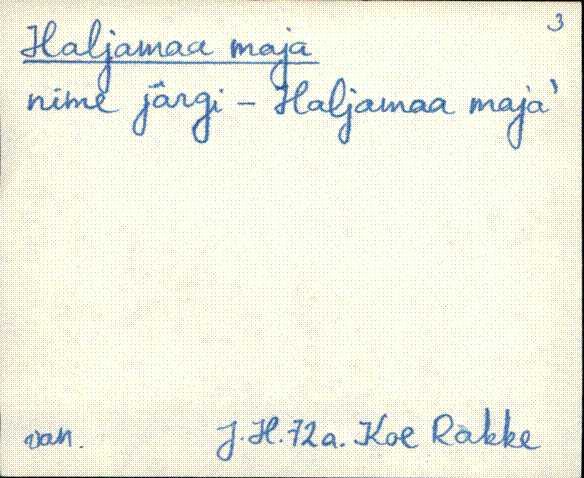 3
Haljamaa maja
nime järgi - Haljamaa maja'
van. J.H. 72a. Koe Rakke